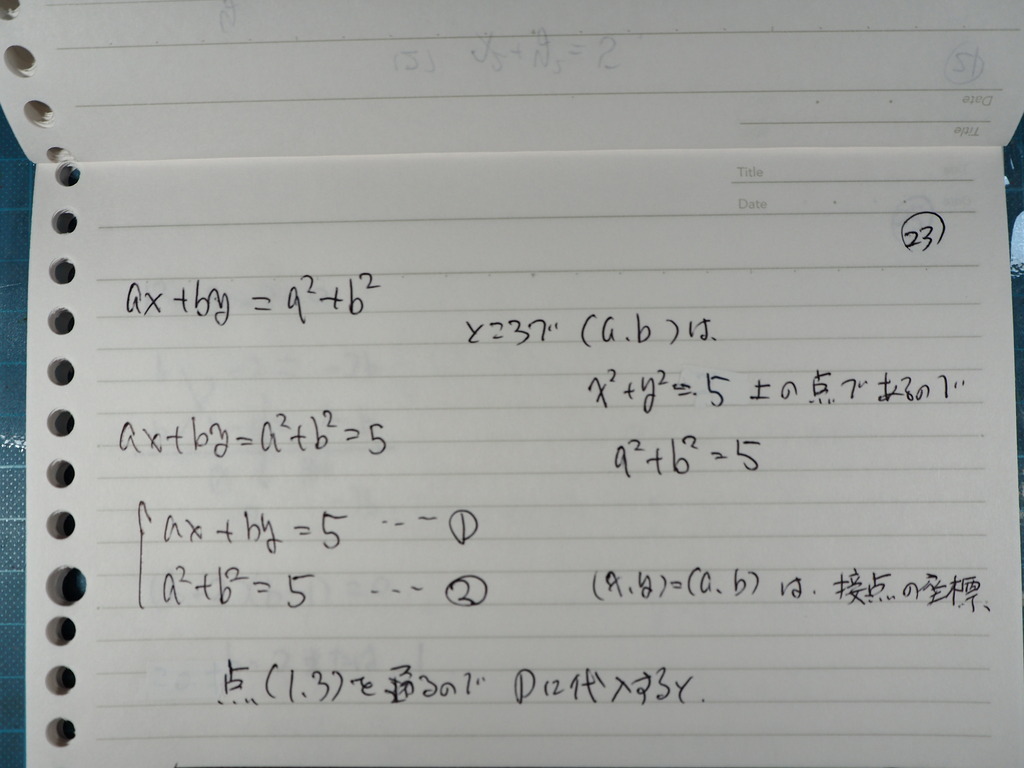 Title
Date
㉓
ax+by=a²+b²
ところで (a.b)は、
x²+y²=5 上の点であるので
ax+by=a²+b²=5
a²+b²=5
ax+by=5 ・・・ ①
a²+b²=5 ・・・ ②
(x.y)=(a.b) は、接点の座標、
点(1.3)を通るので ①に代入すると、